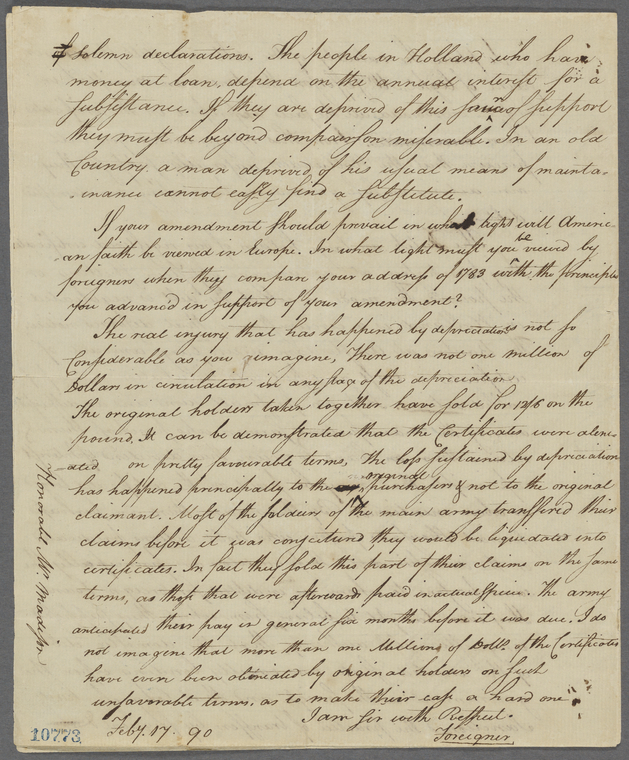 of solemn declarations. The people in Holland who have
money at loan, depend on the annual interest for a
subsistance. If they are deprived of this source of support
they must be beyond comparison miserable. In an old
Country a man deprived of his usual means of mainta-
-inance cannot easily find a substitute.
If your amendment should prevail in what light will Americ-
-an faith be viewed in Europe. In what light must you be viewed by
foreigners when they compare your address of 1783 with the principles
you advanc'd in support of your amendment?
The real injury that has happened by depreciation is not so
Considerable as you imagine, There was not one million of
Dollars in circulation in any stage of the depreciation
The original holders taken together have sold for 12/6 on the
pound. It can be demonstrated that the Certificates were alien-
-ated on pretty favourable terms, The loss sustained by depreciation
has happened principally to the original purchasers & not to the original
claimant. Most of the soldiers of the main army transffered their
claims before it was conjectured they would be liquidated into
certificates. In fact they sold this part of their claims on the same
terms, as those that were afterwards paid in actual specie. The army
anticipated their pay in general six months before it was due. I do
not imagine that more than one Millions of Dolls. of the Certificates
have even been alienated by original holders on such
unfavorable terms, as to make their case a hard one
I am sir with Respect.
Feby. 17. 90
Foreigner
Honorable Mr. Madison
10773